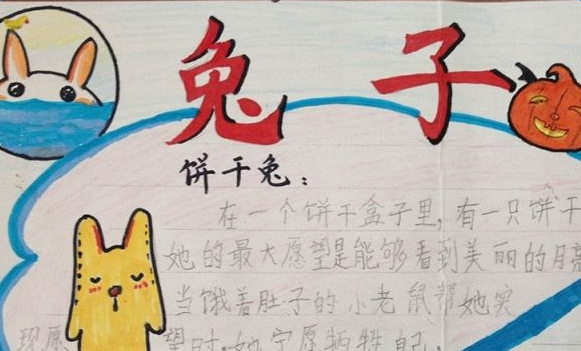 兔子
饼干兔：
在一个饼干盒子里，有一只饼干
她的最大愿望是能够看到美丽的月亮
当饿着肚子的小老鼠帮她实
现愿望时，她宁愿牺牲自己，